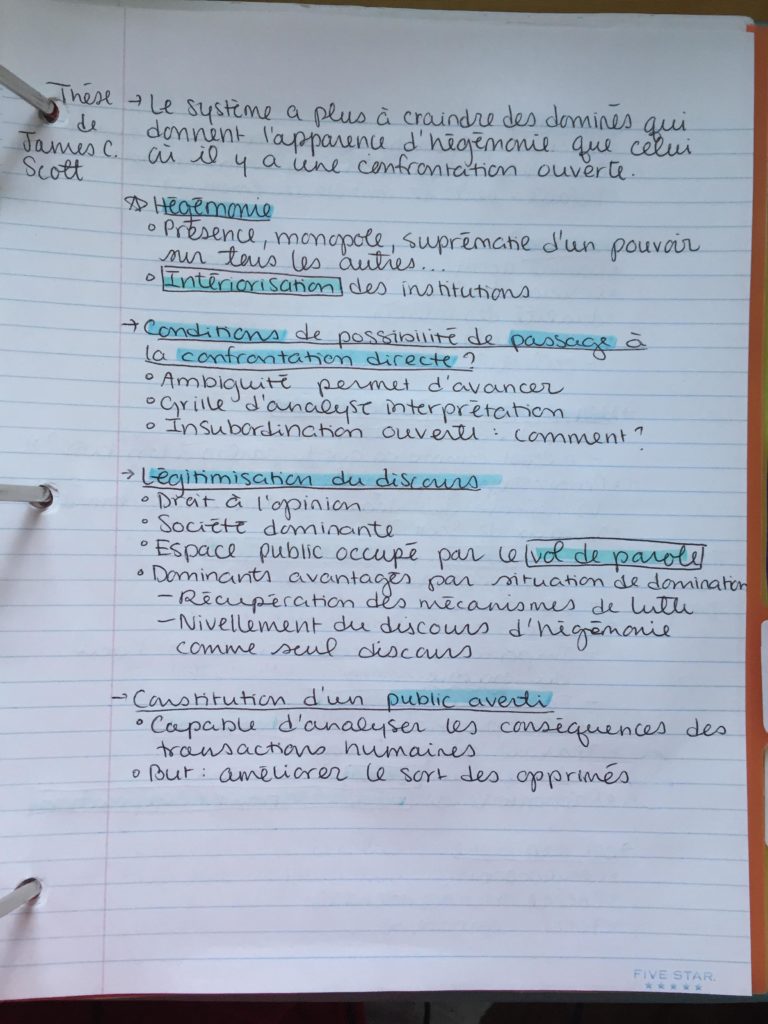 Thèse de James C. Scott
→ Le système a plus à craindre des dominés qui
donnent l'apparence d'hégémonie que celui
où il y a une confrontation ouverte.
☆ Hégémonie
° Présence, monopole, suprématie d'un pouvoir
sur tous les autres...
° Intériorisation des institutions
→ Conditions de possibilité de passage à
la confrontation directe ?
° Ambiguité permet d'avancer
° Grille d'analyse interprétation
° Insubordination ouverte : comment ?
→ Légitimisation du discours
° Droit à l'opinion
° Société dominante
° Espace public occupé par le vol de parole
° Dominants avantagés par situation de domination
– Récupération des mécanismes de lutte
– Nivellement du discours d'hégémonie
comme seul discours
→ Constitution d'un public averti
° Capable d'analyser les conséquences des
transactions humaines
° But : améliorer le sort des opprimés
FIVE STAR.
★★★★★